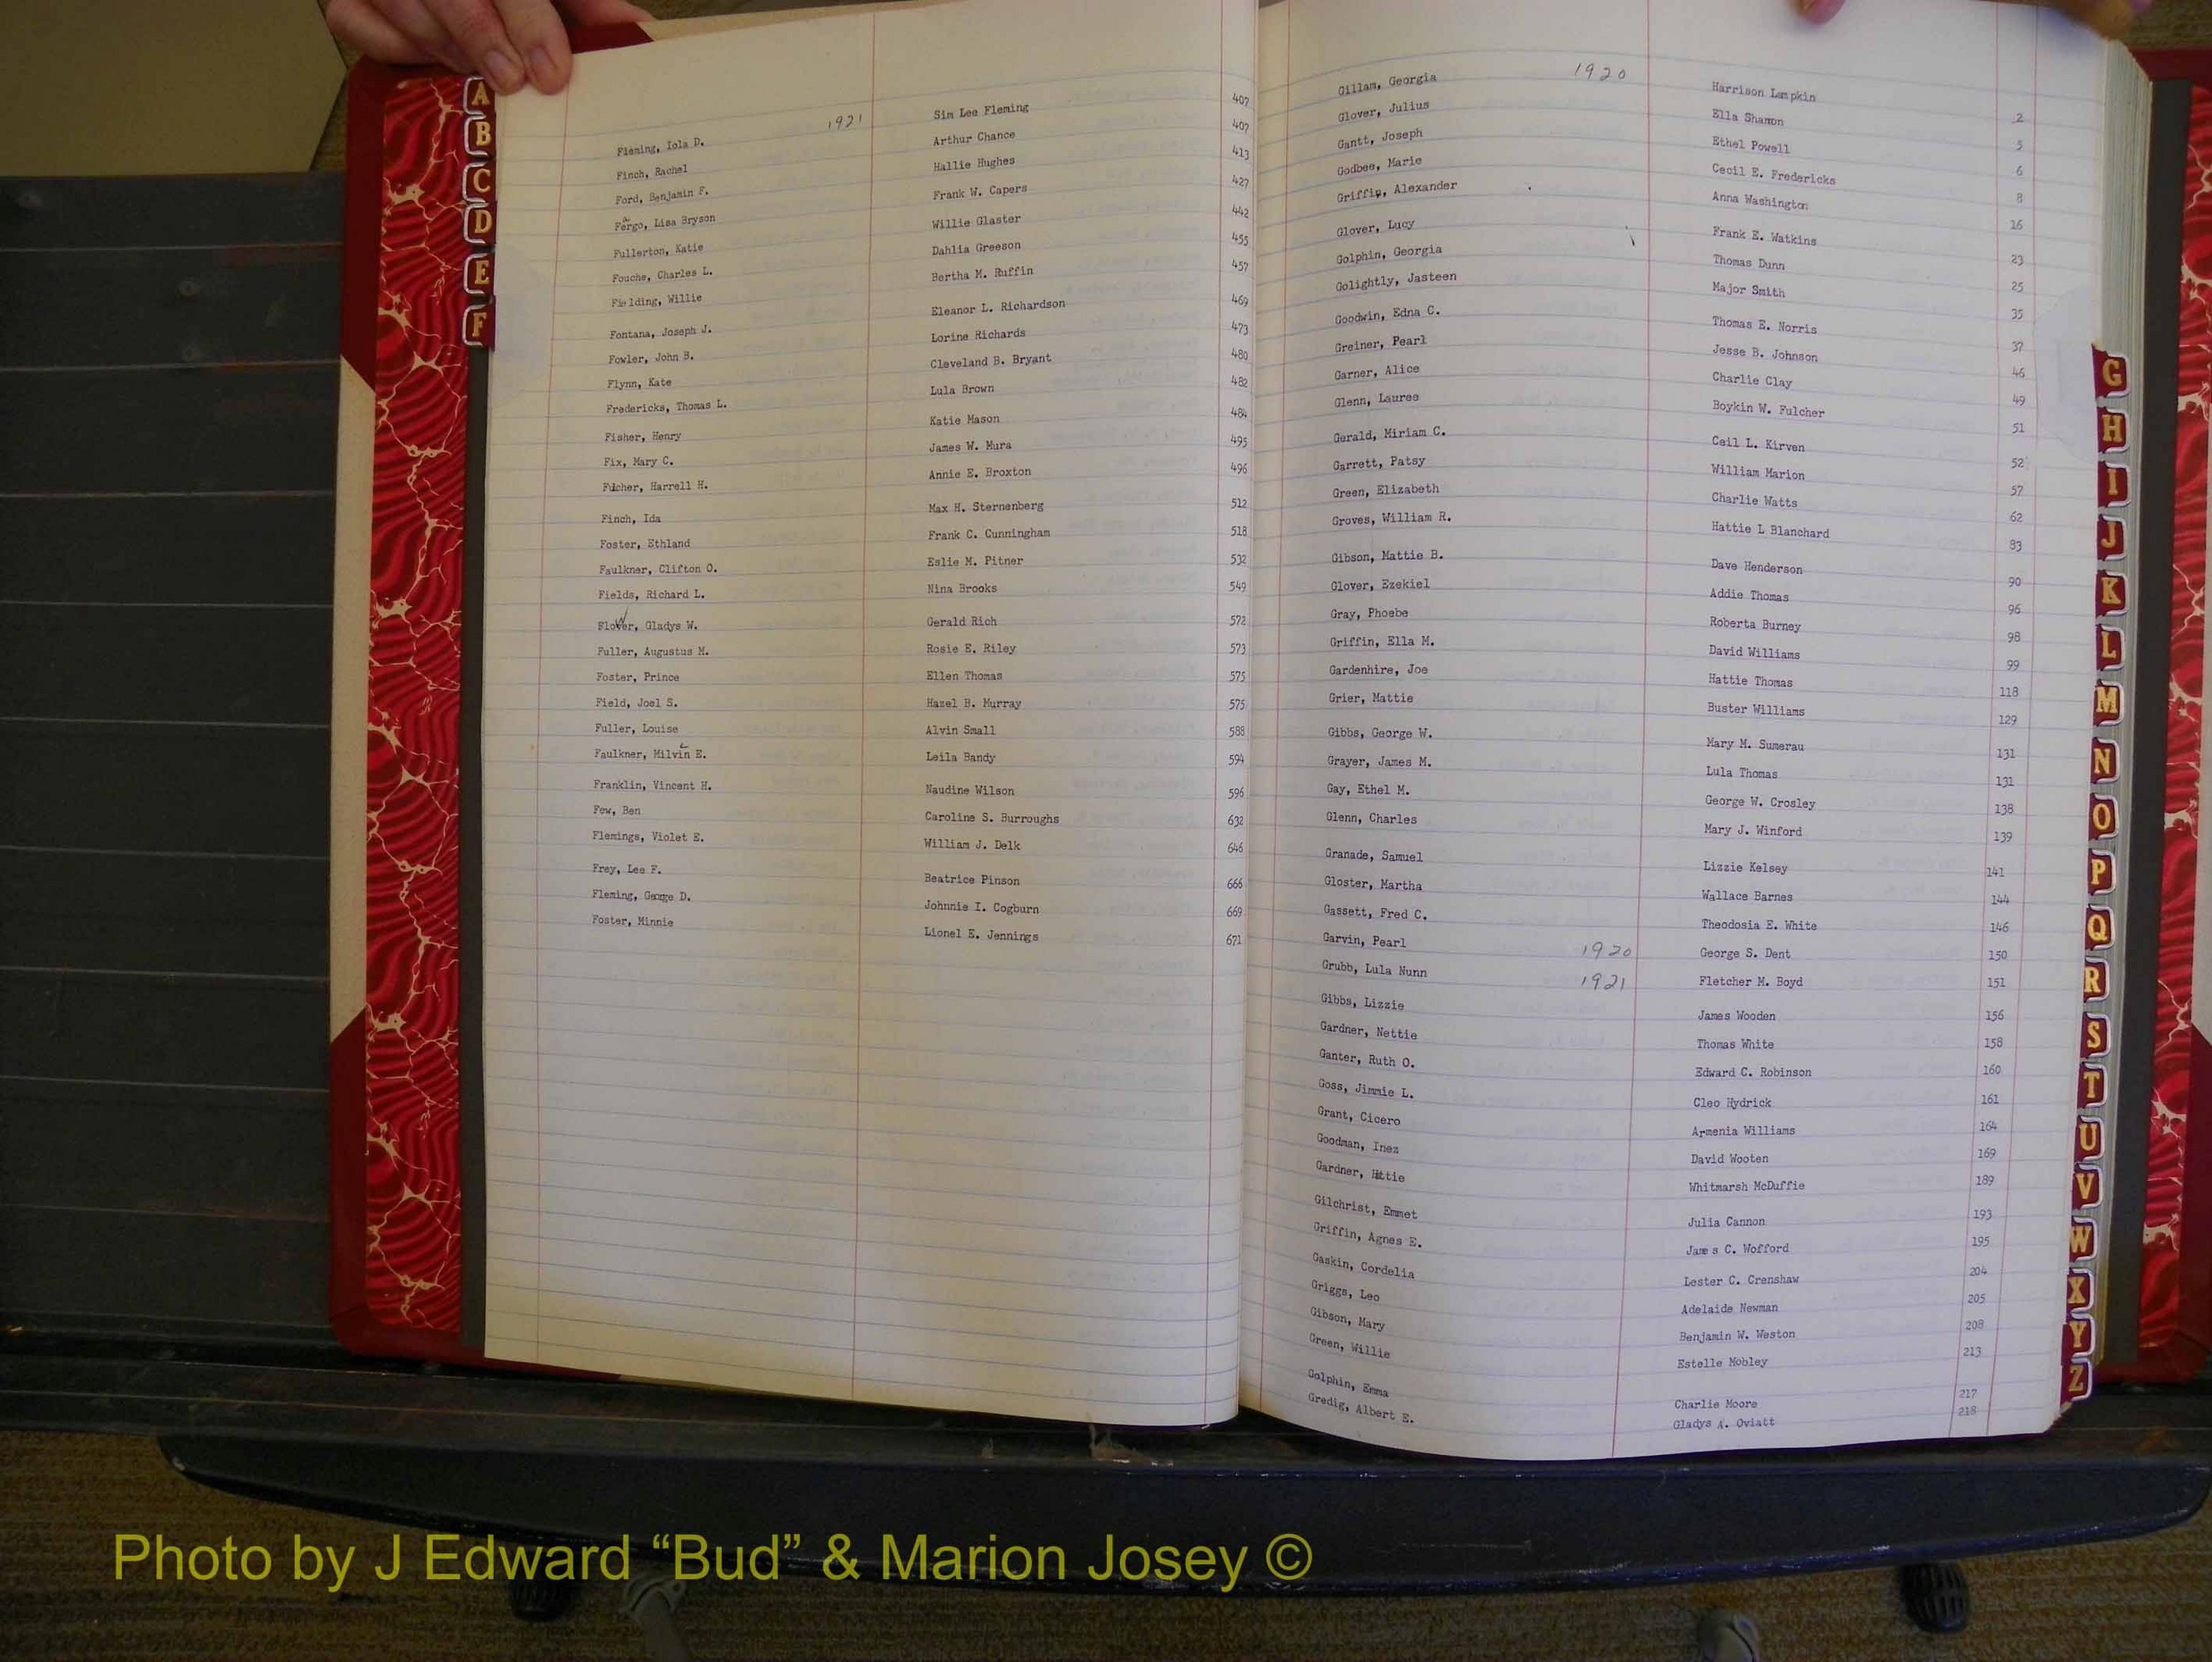 A
B
C
D
E
F
1921
Fleming, Iola D. Sim Lee Fleming 407
Finch, Rachel Arthur Chance 407
Ford, Benjamin F. Hallie Hughes 413
Fargo, Lisa Bryson Frank W. Capers 427
Fullerton, Katie Willie Glaster 442
Fouche, Charles L. Dahlia Greeson 455
Fielding, Willie Bertha M. Ruffin 457
Fontana, Joseph J. Eleanor L. Richardson 469
Fowler, John B. Lorine Richards 473
Flynn, Kate Cleveland B. Bryant 480
Fredericks, Thomas L. Lula Brown 482
Fisher, Henry Katie Mason 484
Fix, Mary C. James W. Mura 495
Fulcher, Harrell H. Annie E. Broxton 496
Finch, Ida Max H. Sternenberg 512
Foster, Ethland Frank C. Cunningham 518
Faulkner, Clifton O. Eslie M. Pitner 532
Fields, Richard L. Nina Brooks 549
Flower, Gladys W. Gerald Rich 572
Fuller, Augustus M. Rosie E. Riley 573
Foster, Prince Ellen Thomas 575
Field, Joel S. Hazel B. Murray 575
Fuller, Louise Alvin Small 588
Faulkner, Milvin E. Leila Bandy 594
Franklin, Vincent H. Naudine Wilson 596
Few, Ben Caroline S. Burroughs 632
Flemings, Violet E. William J. Delk 646
Frey, Lee F. Beatrice Pinson 666
Fleming, George D. Johnnie I. Cogburn 669
Foster, Minnie Lionel E. Jennings 671
Gillam, Georgia 1920 Harrison Lampkin 2
Glover, Julius Ella Shannon 5
Gantt, Joseph Ethel Powell 6
Godbee, Marie Cecil E. Fredericks 8
Griffin, Alexander Anna Washington 16
Glover, Lucy Frank E. Watkins 23
Golphin, Georgia Thomas Dunn 25
Golightly, Jasteen Major Smith 35
Goodwin, Edna C. Thomas E. Norris 37
Greiner, Pearl Jesse B. Johnson 46
Garner, Alice Charlie Clay 49
Glenn, Lauree Boykin W. Fulcher 51
Gerald, Miriam C. Ceil L. Kirven 52
Garrett, Patsy William Marion 57
Green, Elizabeth Charlie Watts 62
Groves, William R. Hattie L Blanchard 83
Gibson, Mattie B. Dave Henderson 90
Glover, Ezekiel Addie Thomas 96
Gray, Phoebe Roberta Burney 98
Griffin, Ella M. David Williams 99
Gardenhire, Joe Hattie Thomas 118
Grier, Mattie Buster Williams 129
Gibbs, George W. Mary M. Sumerau 131
Grayer, James M. Lula Thomas 131
Gay, Ethel M. George W. Crosley 138
Glenn, Charles Mary J. Winford 139
Granade, Samuel Lizzie Kelsey 141
Gloster, Martha Wallace Barnes 144
Gassett, Fred C. Theodosia E. White 146
Garvin, Pearl 1920 George S. Dent 150
Grubb, Lula Nunn 1921 Fletcher M. Boyd 151
Gibbs, Lizzie James Wooden 156
Gardner, Nettie Thomas White 158
Ganter, Ruth O. Edward C. Robinson 160
Goss, Jimmie L. Cleo Hydrick 161
Grant, Cicero Armenia Williams 164
Goodman, Inez David Wooten 169
Gardner, Hattie Whitmarsh McDuffie 189
Gilchrist, Emmet Julia Cannon 193
Griffin, Agnes E. James C. Wofford 195
Gaskin, Cordelia Lester C. Crenshaw 204
Griggs, Leo Adelaide Newman 205
Gibson, Mary Benjamin W. Weston 208
Green, Willie Estelle Mobley 213
Golphin, Emma Charlie Moore 217
Gredig, Albert E. Gladys A. Oviatt 218
G
H
I
J
K
L
M
N
O
P
Q
R
S
T
U
V
W
X
Y
Z
Photo by J Edward “Bud” & Marion Josey ©